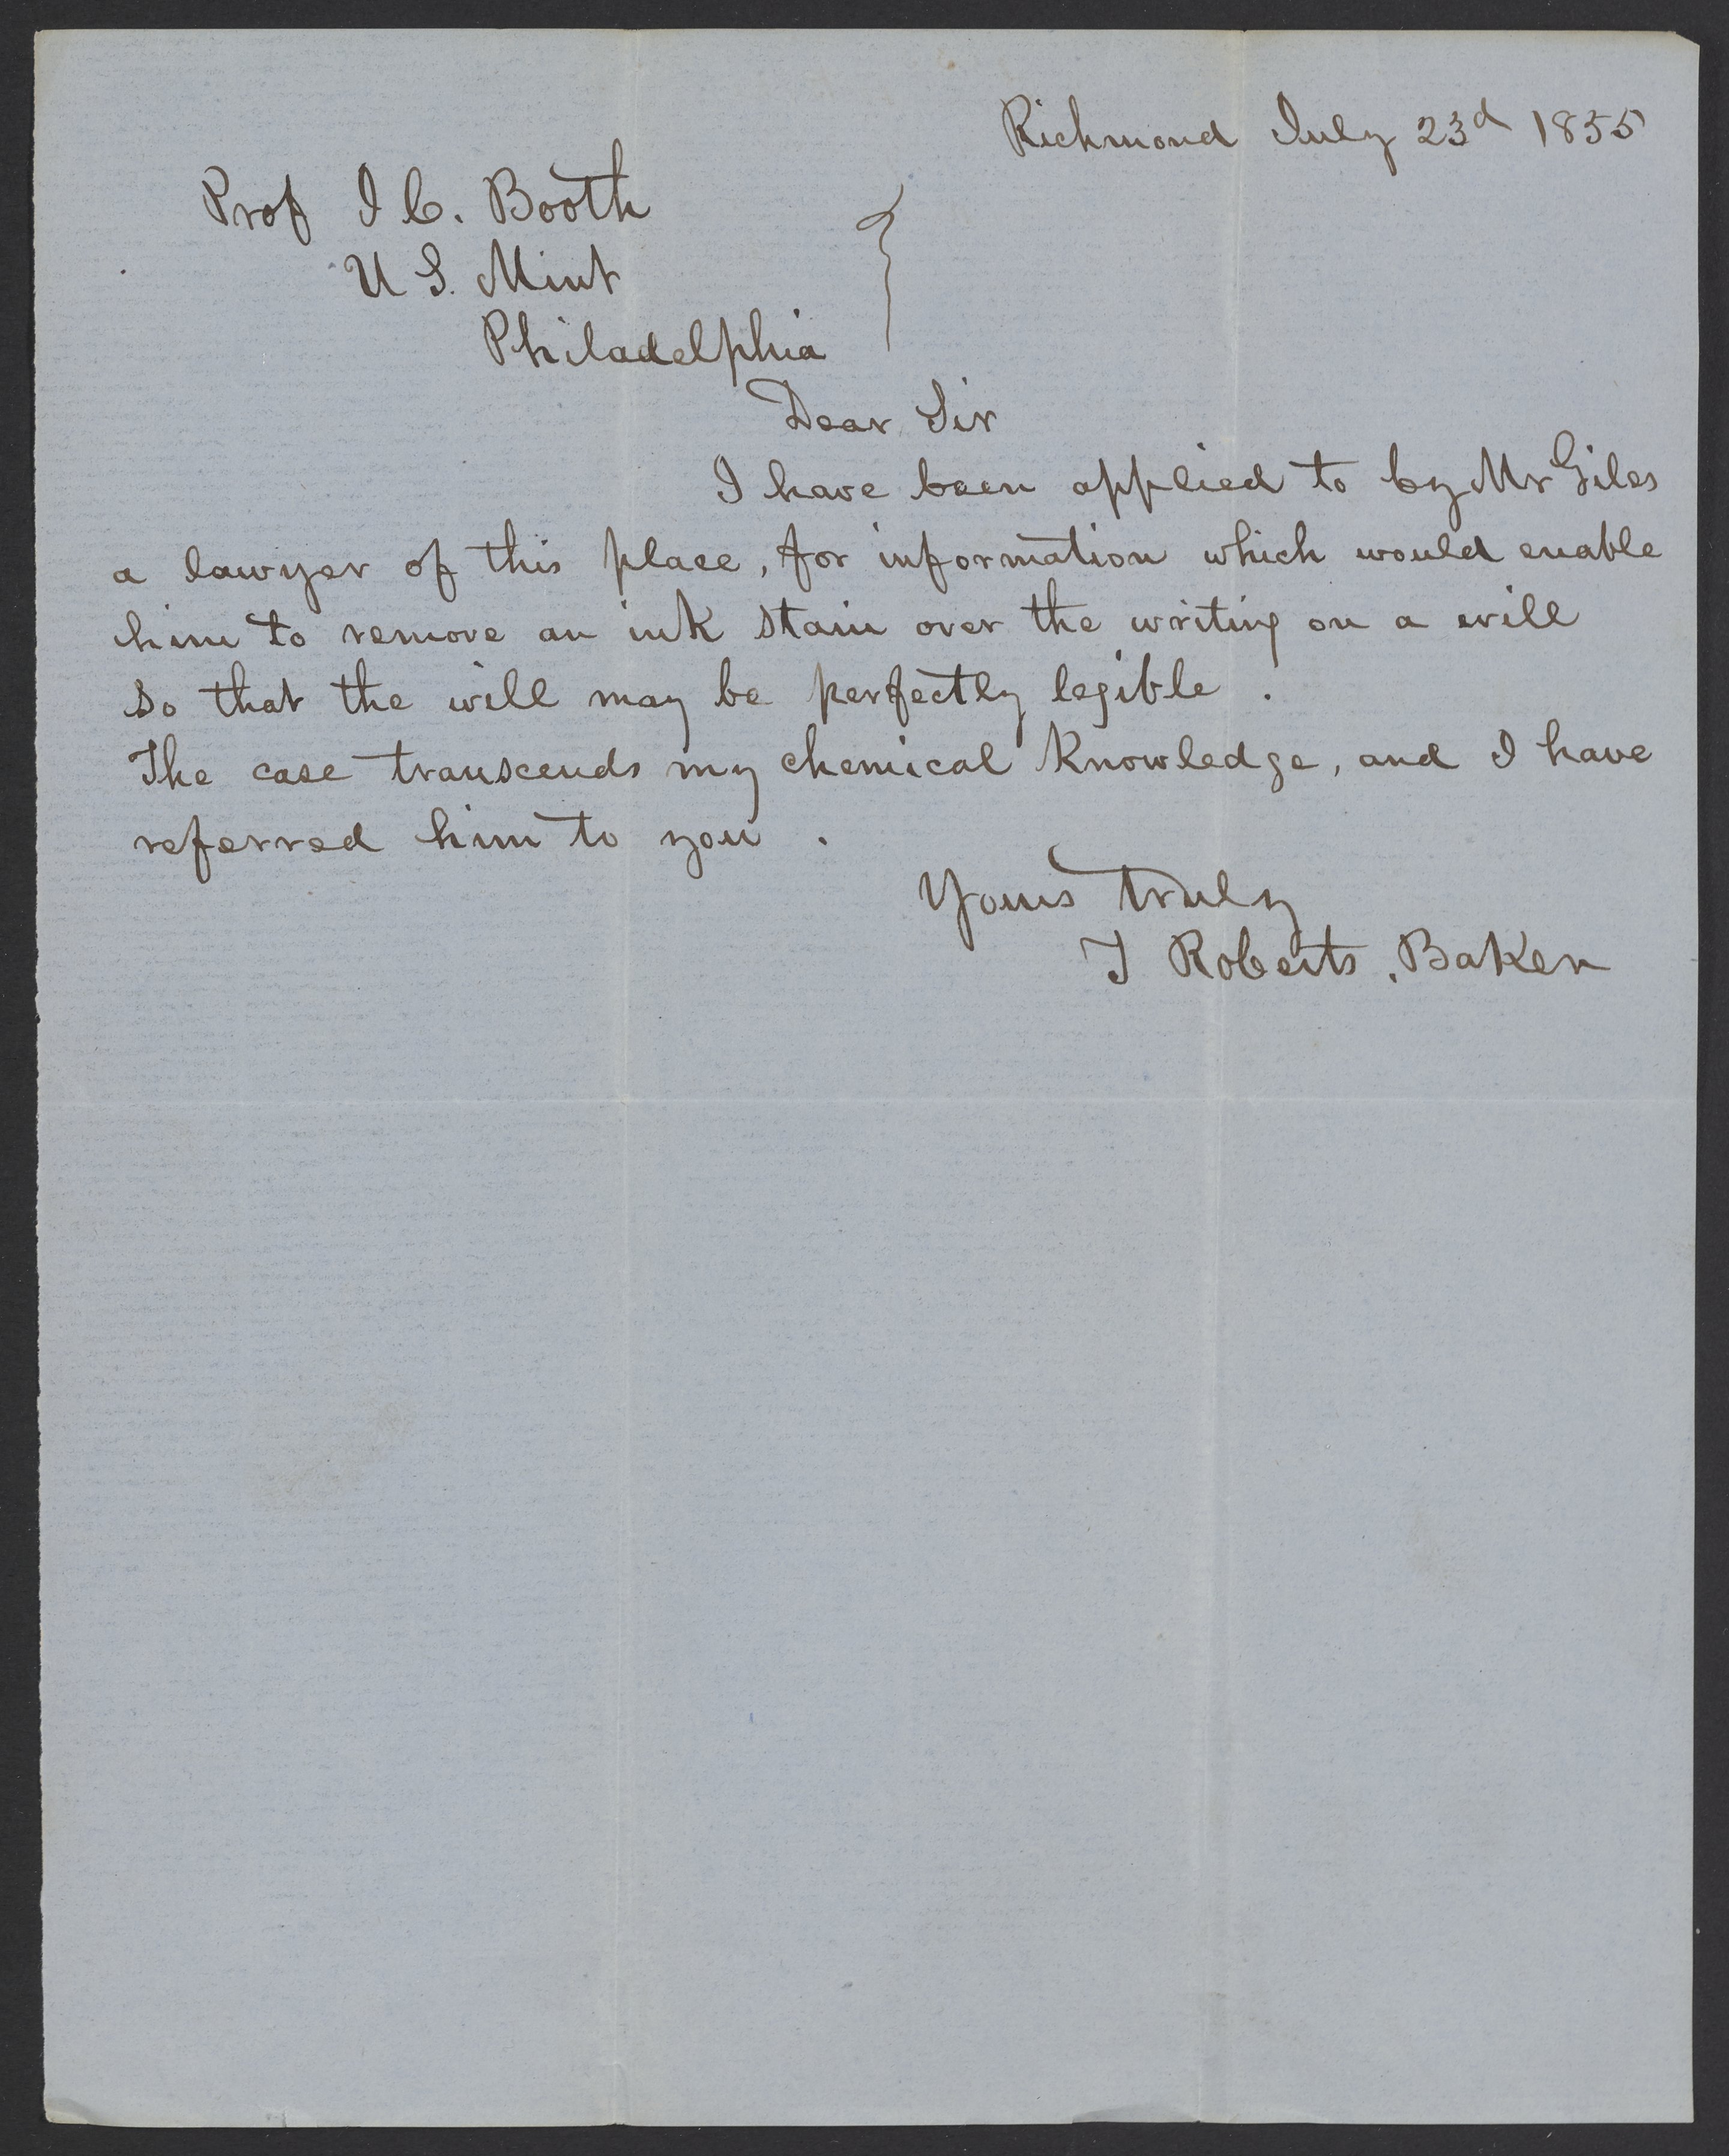 Richmond July 23d 1855
Prof J C. Booth
U S. Mint
Philadelphia
Dear Sir
I have been applied to by Mr Giles
a lawyer of this place, for information which would enable
him to remove an ink stain over the writing on a will
so that the will may be perfectly legible.
The case transcends my chemical knowledge, and I have
referred him to you.
Yours truly
T Roberts Baker